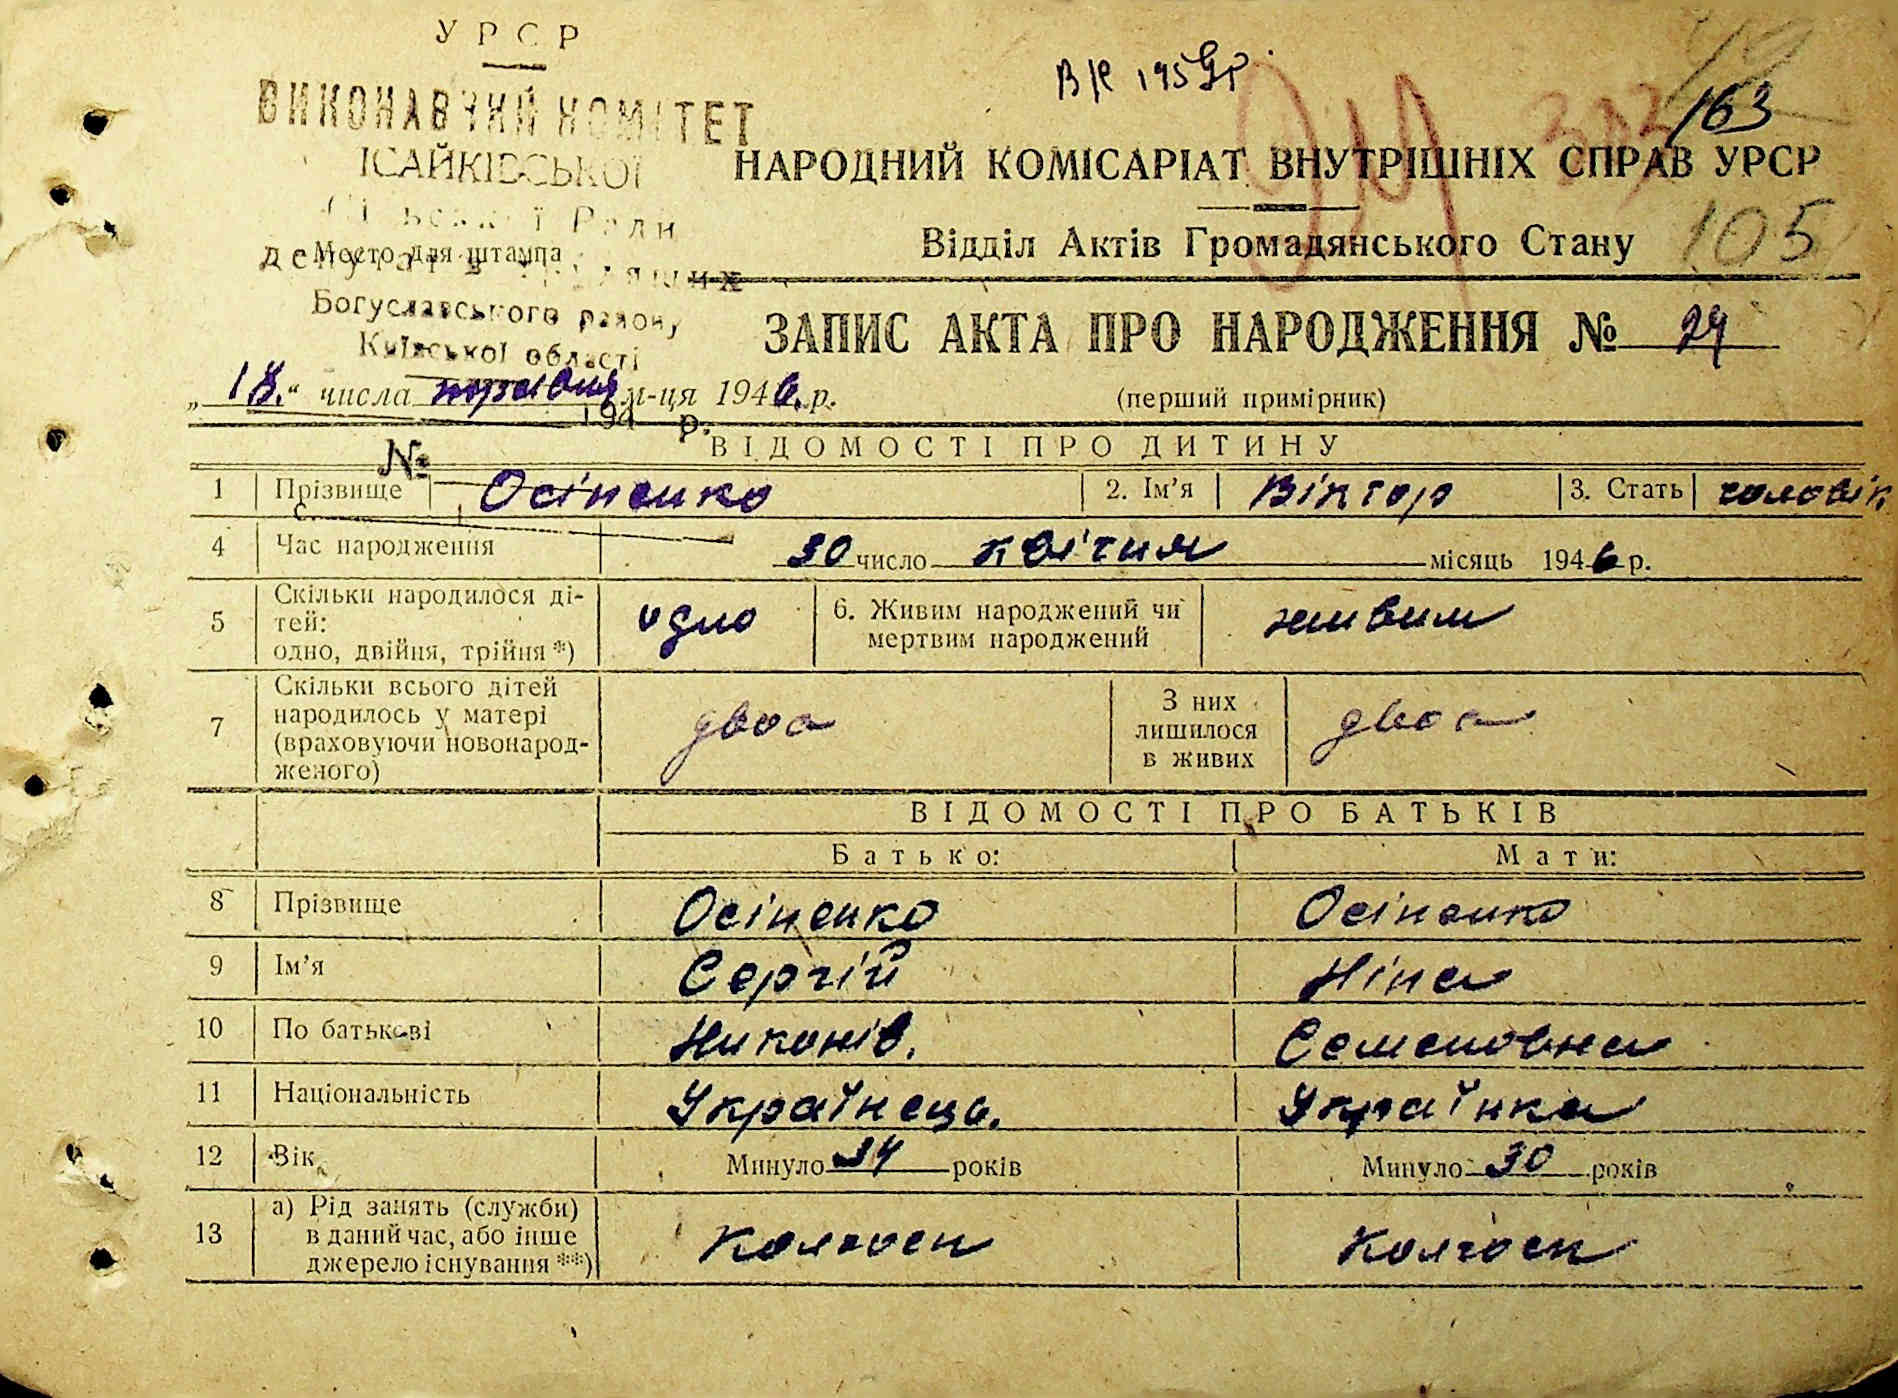 УРСР
ВИКОНАВЧИЙ КОМІТЕТ
ІСАЙКІВСЬКОЇ
Сільської Ради
Место для штампа
Богуславського району
Київської області
163
НАРОДНИЙ КОМІСАРІАТ ВНУТРІШНІХ СПРАВ УРСР
Відділ Актів Громадянського Стану 105
ЗАПИС АКТА ПРО НАРОДЖЕННЯ № 24
„18“ числа травня м-ця 1946 р. (перший примірник)
194 р.
ВІДОМОСТІ ПРО ДИТИНУ
№
1 Прізвище Осіпенко 2. Ім’я Віктор 3. Стать чоловік
с.
4 Час народження 30 число квітня місяць 1946 р.
5 Скільки народилося ді-
тей:
одно, двійня, трійня *) одно 6. Живим народжений чи
мертвим народжений живим
7 Скільки всього дітей
народилось у матері
(враховуючи новонарод-
женого) двоа З них
лишилося
в живих двоа
ВІДОМОСТІ ПРО БАТЬКІВ
Батько: Мати:
8 Прізвище Осіпенко Осіпенко
9 Ім’я Сергій Ніна
10 По батькові Никонів. Семеновна
11 Національність Українець. Українка
12 Вік Минуло 34 років Минуло 30 років
13 а) Рід занять (служби)
в даний час, або інше
джерело існування **) Колгосп Колгосп